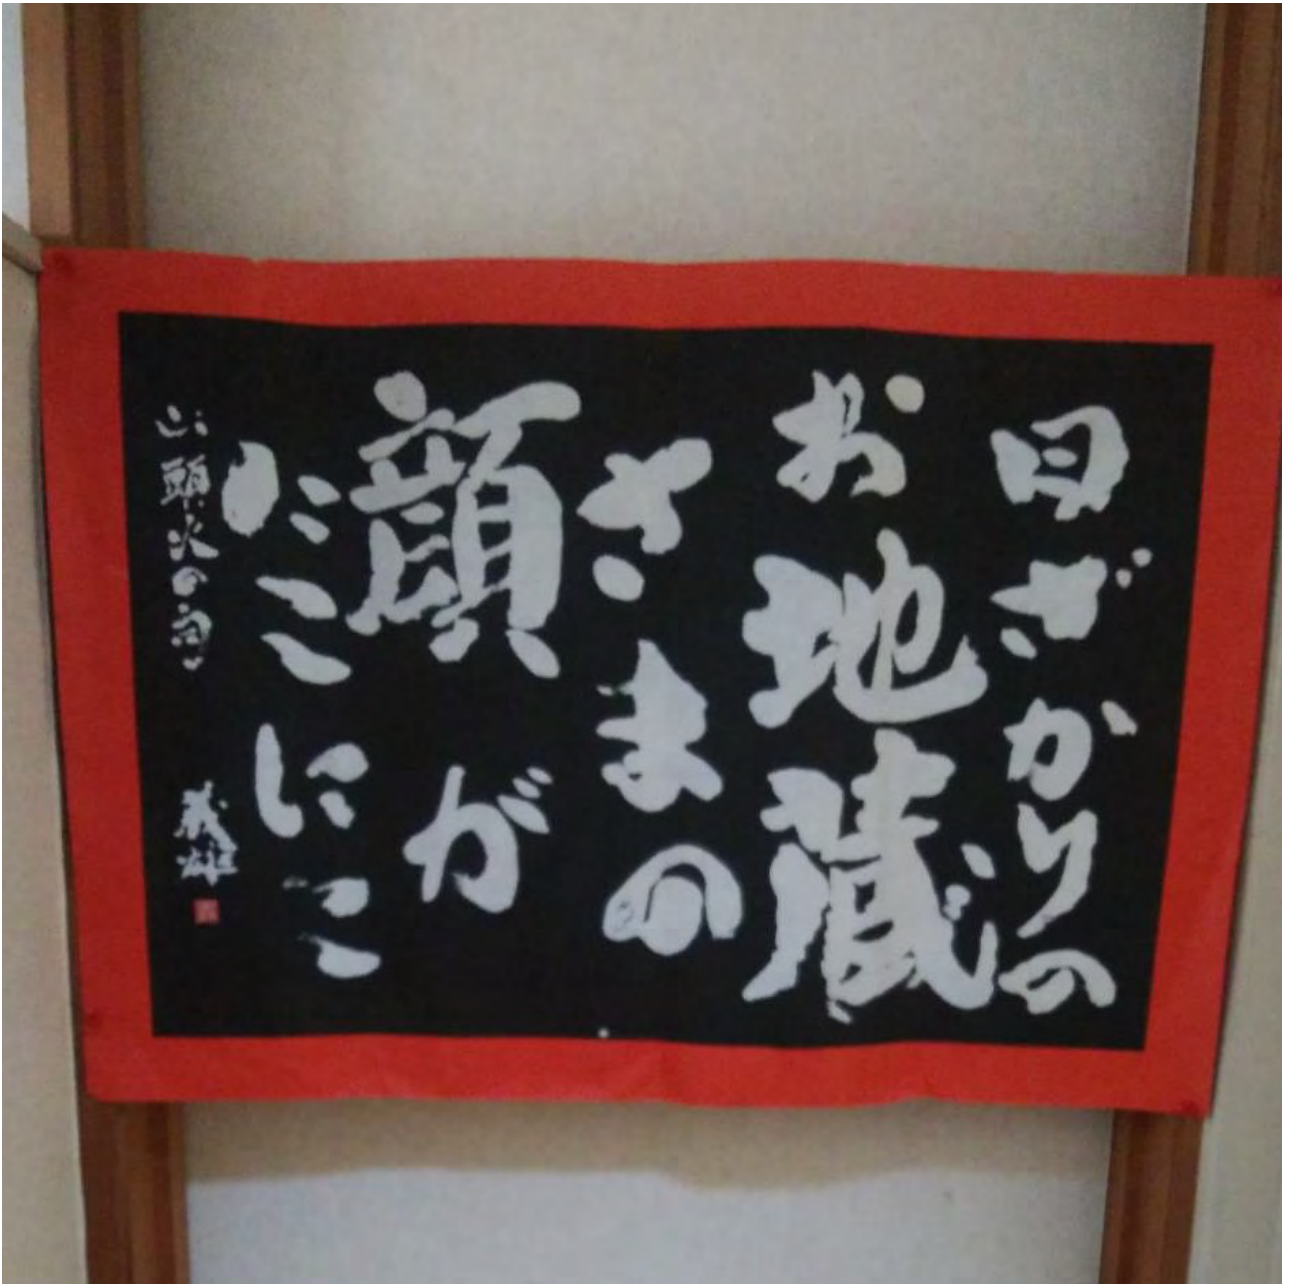 日ざかりの
お地蔵
さまの
顔が
にこにこ
山頭火の句
義雄